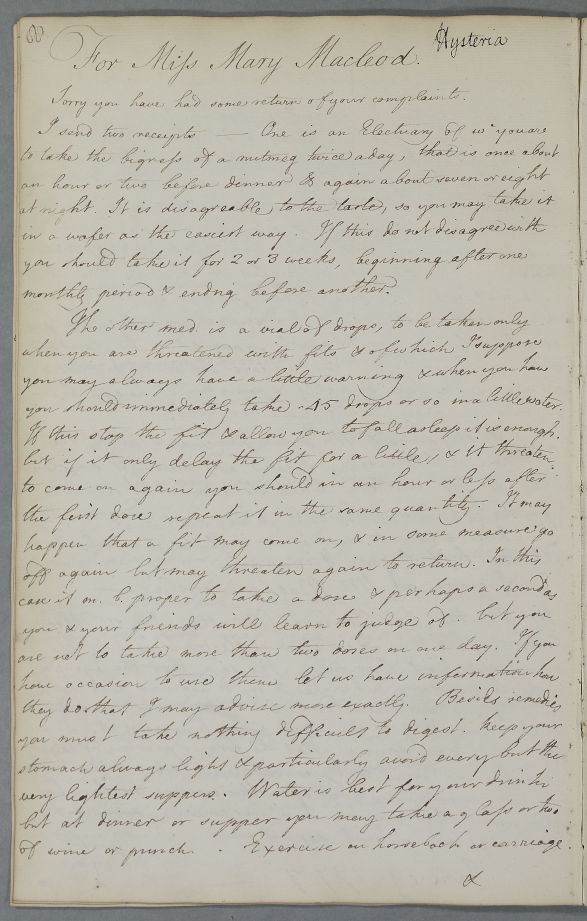 Hysteria
For Miss Mary Macleod.
Sorry you have had some return of your complaints.
I send two receipts — One is an Electuary of wh you are
to take the bigness of a nutmeg twice a day, that is once about
an hour or two before dinner & again about seven or eight
at night. It is disagreeable to the taste, so you may take it
in a wafer as the easiest way. If this do not disagree with
you should take it for 2 or 3 weeks, beginning after one
monthly period & endng before another.
The other med. is a vial of drops, to be taken only
when you are threatened with fits & of which I suppose
you may always have a little warning & when you have
you should immediately take 45 drops or so in a little water.
If this stop the fit & allow you to fall asleep it is enough.
but if it only delay the fit for a little, & it threaten
to come on again you should in an hour or less after
the first dose repeat it in the same quantity. It may
happen that a fit may come on, & in some measure go
off again but may threaten again to return. In this
case it m. b. proper to take a dose & perhaps a second as
you & your friends will learn to judge of. but you
are not to take more than two doses in one day. If you
have occasion to use them let us have information how
they do that I may advise more exactly. Besids remedies
you must take nothing difficult to digest. keep your
stomach always light & particularly avoid every but the
very lightest suppers. Water is best for your drink
but at dinner or supper you may take a glass or two
of wine or punch. Exercise on horseback or carriage
&